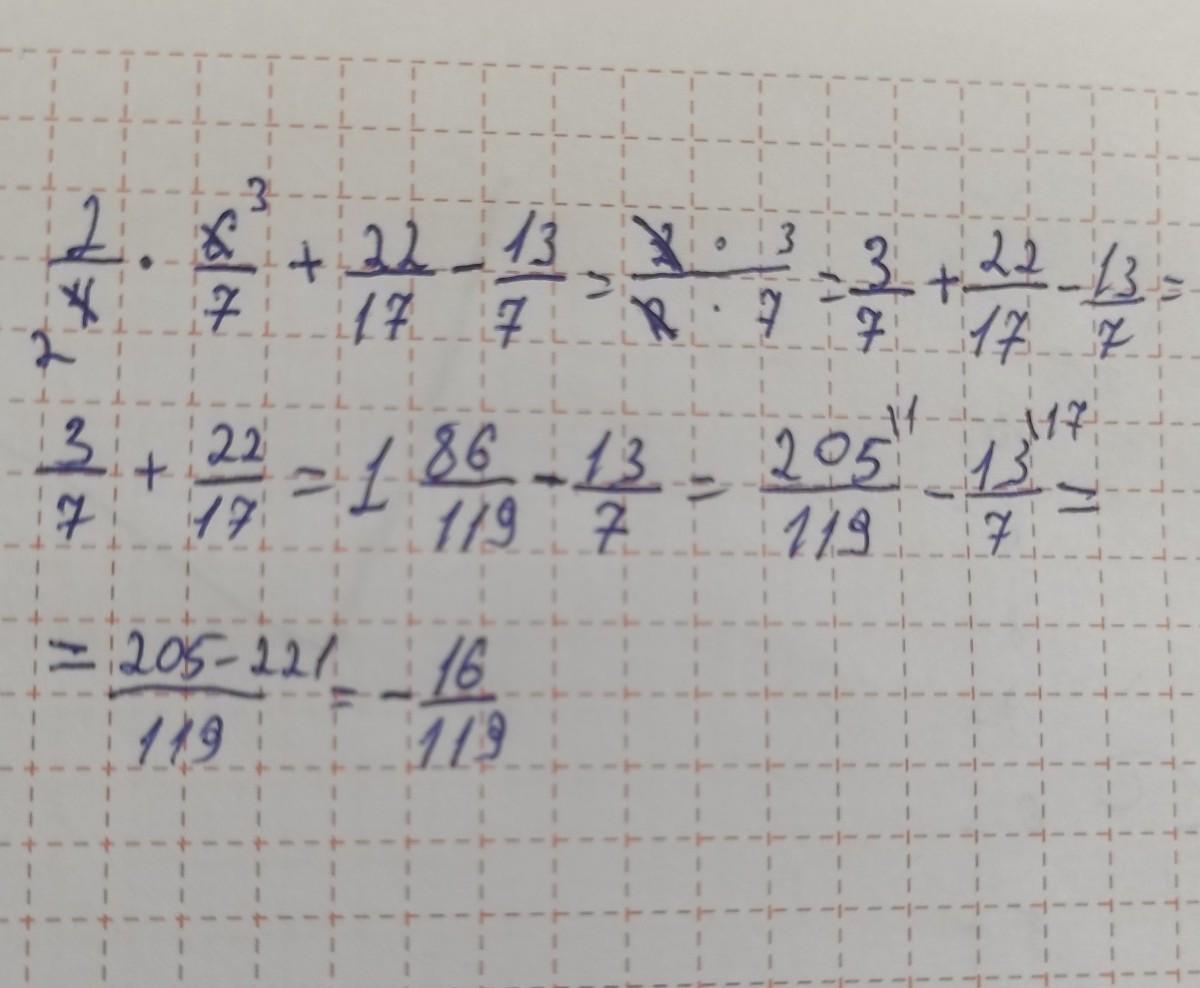 2/4 · 6/7 ³ + 22/17 - 13/7 = 2 · 3 / 2 · 7 = 3/7 + 22/17 - 13/7 =
2
3/7 + 22/17 = 1 86/119 - 13/7 = 205/119 \1 - 13/7 \17 =
= 205-221/119 = - 16/119